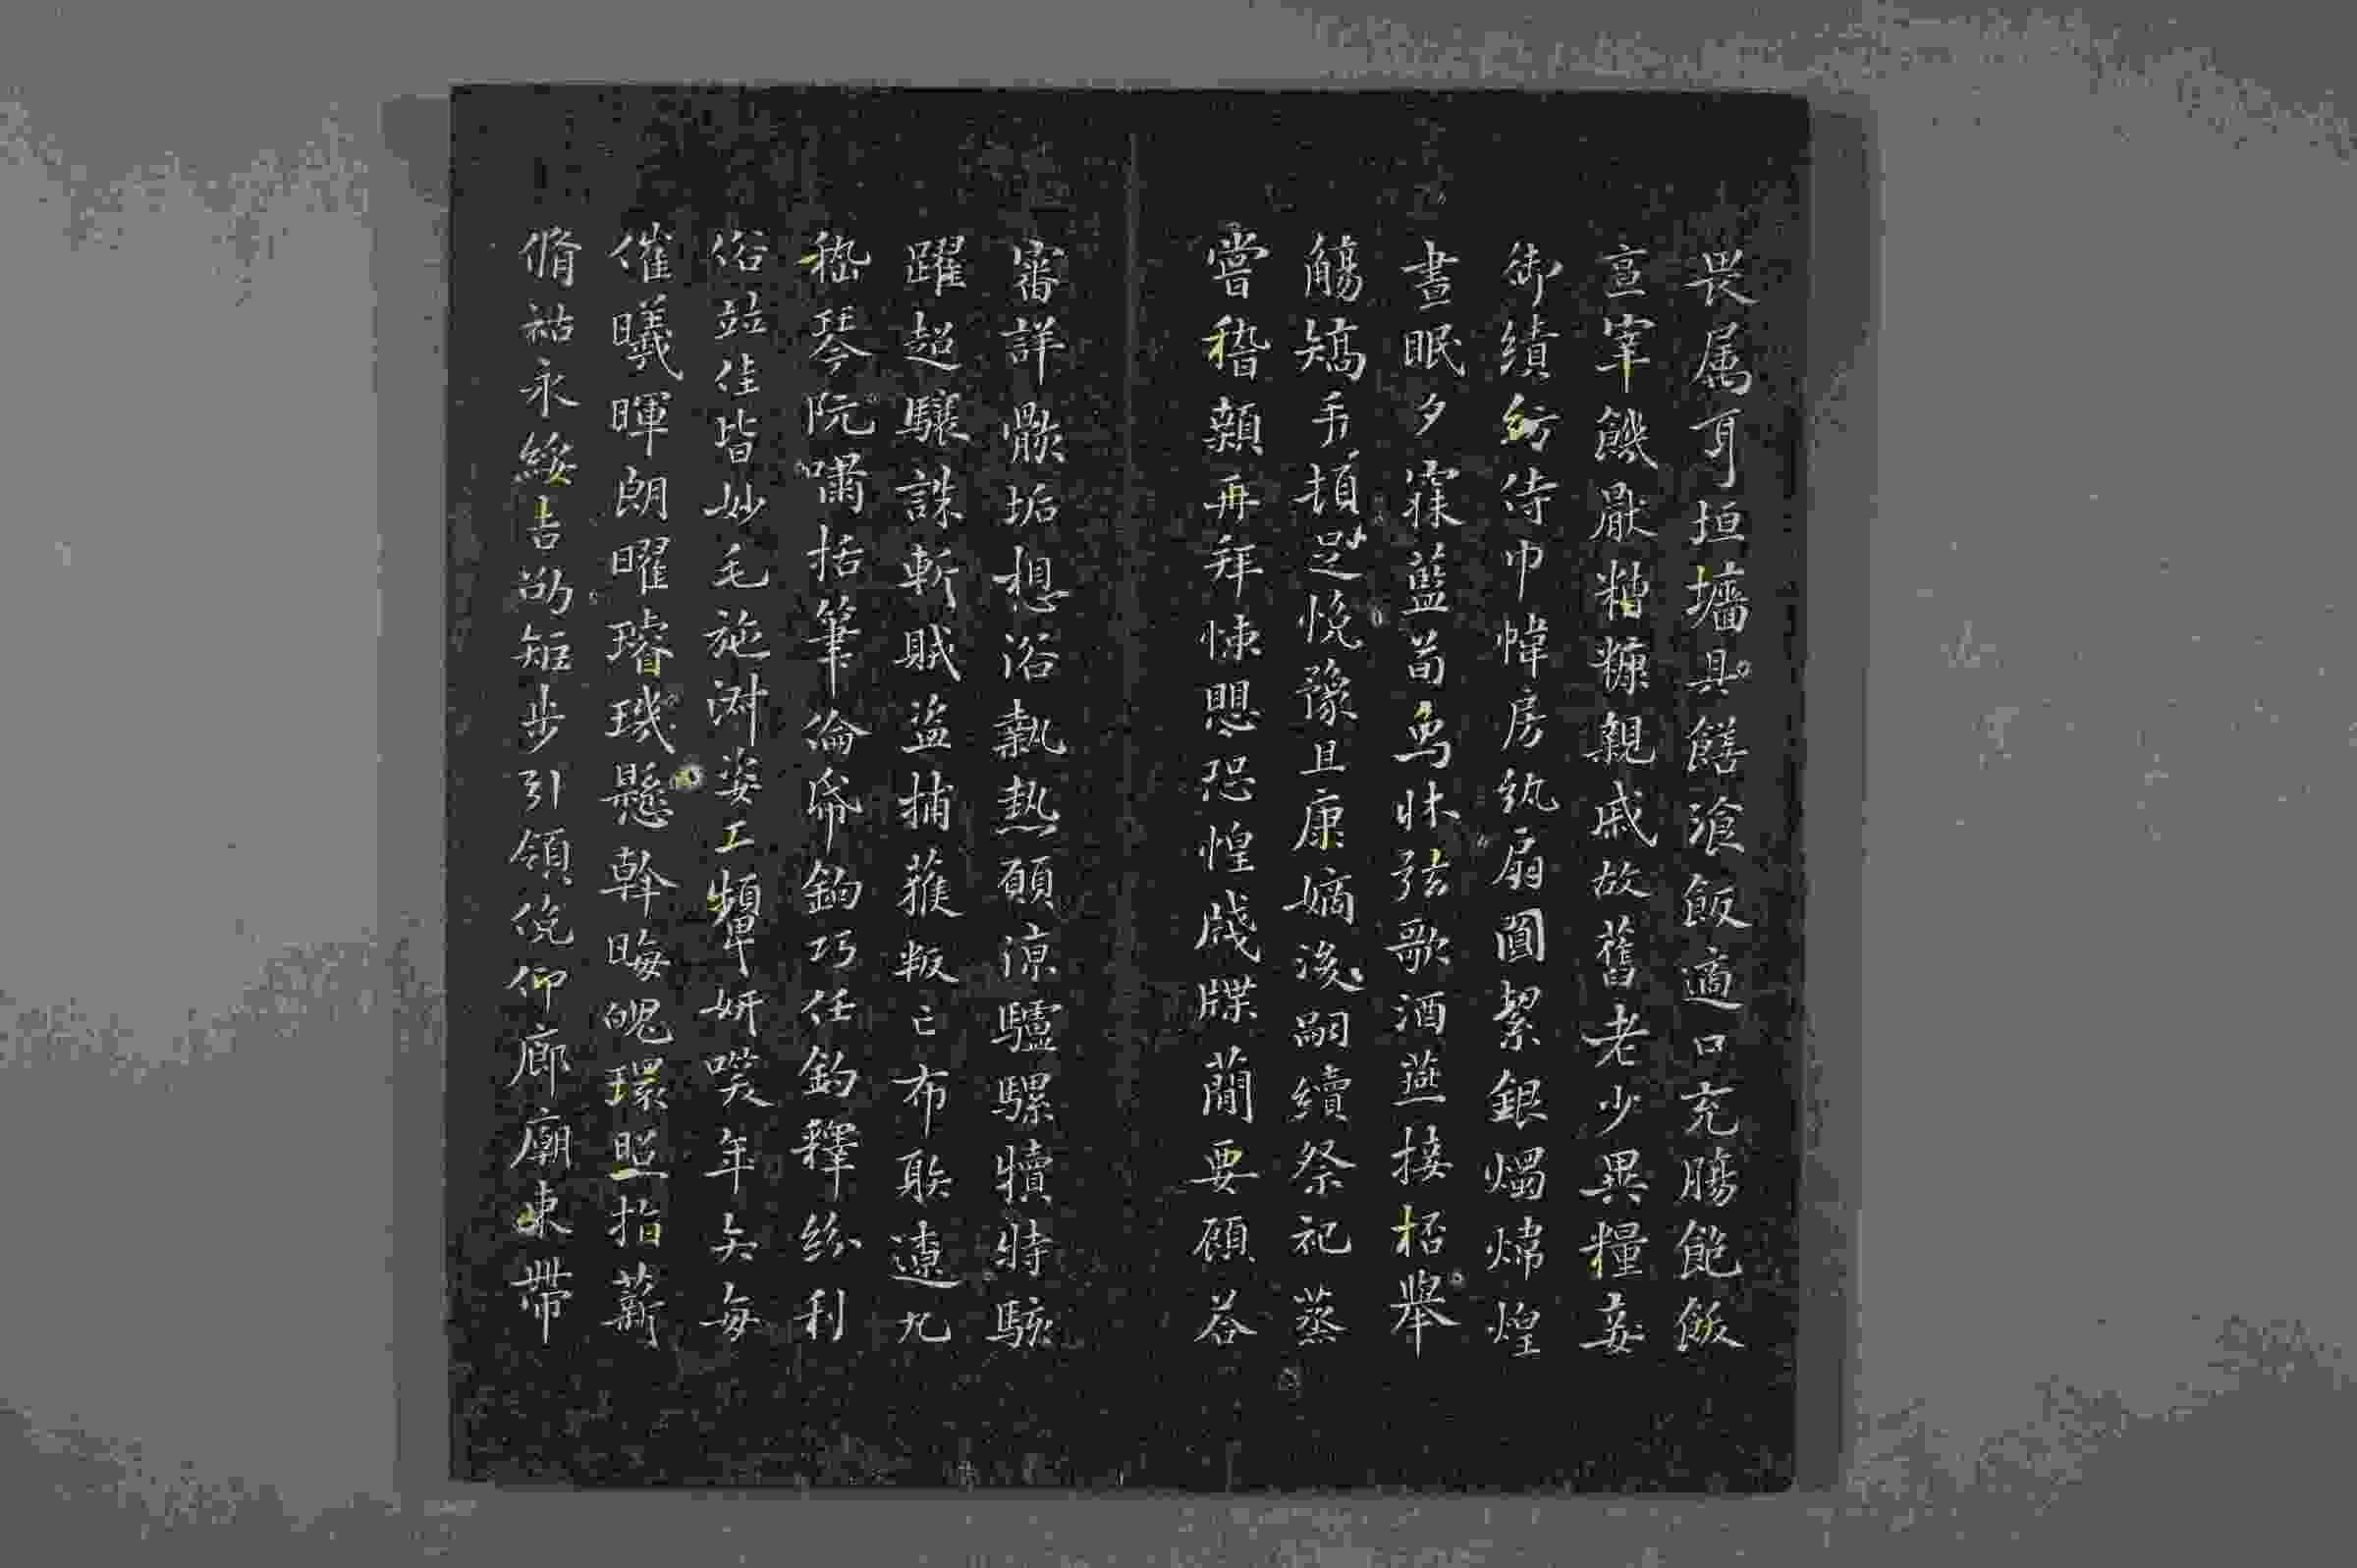 畏属耳垣墻具饍湌飯適口充膓飽飯
亯宰饑猒糟糠親戚故舊老少異糧妾
御績紡侍巾幃房紈扇圓絜銀燭煒煌
晝眠夕寐藍荀象牀弦歌酒燕接杯舉
觴矯手頓足悅豫且康嫡後嗣續祭祀蒸
嘗稽顙再拜悚懼恐惶牋牒蕳要顧荅
審詳骸垢想浴執熱願涼驢騾犢特駭
躍超驤誅斬賊盜捕獲叛亡布射遼丸
嵇琴阮嘯恬筆倫帋鈞巧任釣釋紛利
俗竝佳皆妙毛施淑姿工顰妍咲年矢每
催曦暉朗曜璿璣懸斡晦魄環照指薪
脩祜永綏吉劭矩步引領俛仰廊廟束帶